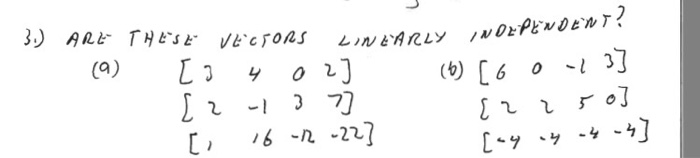 3.) ARE THESE VECTORS LINEARLY INDEPENDENT?
(a) [3 4 0 2] (b) [6 0 -1 3]
[2 -1 3 7] [2 2 5 0]
[1 16 -12 -22] [-4 -4 -4 -4]